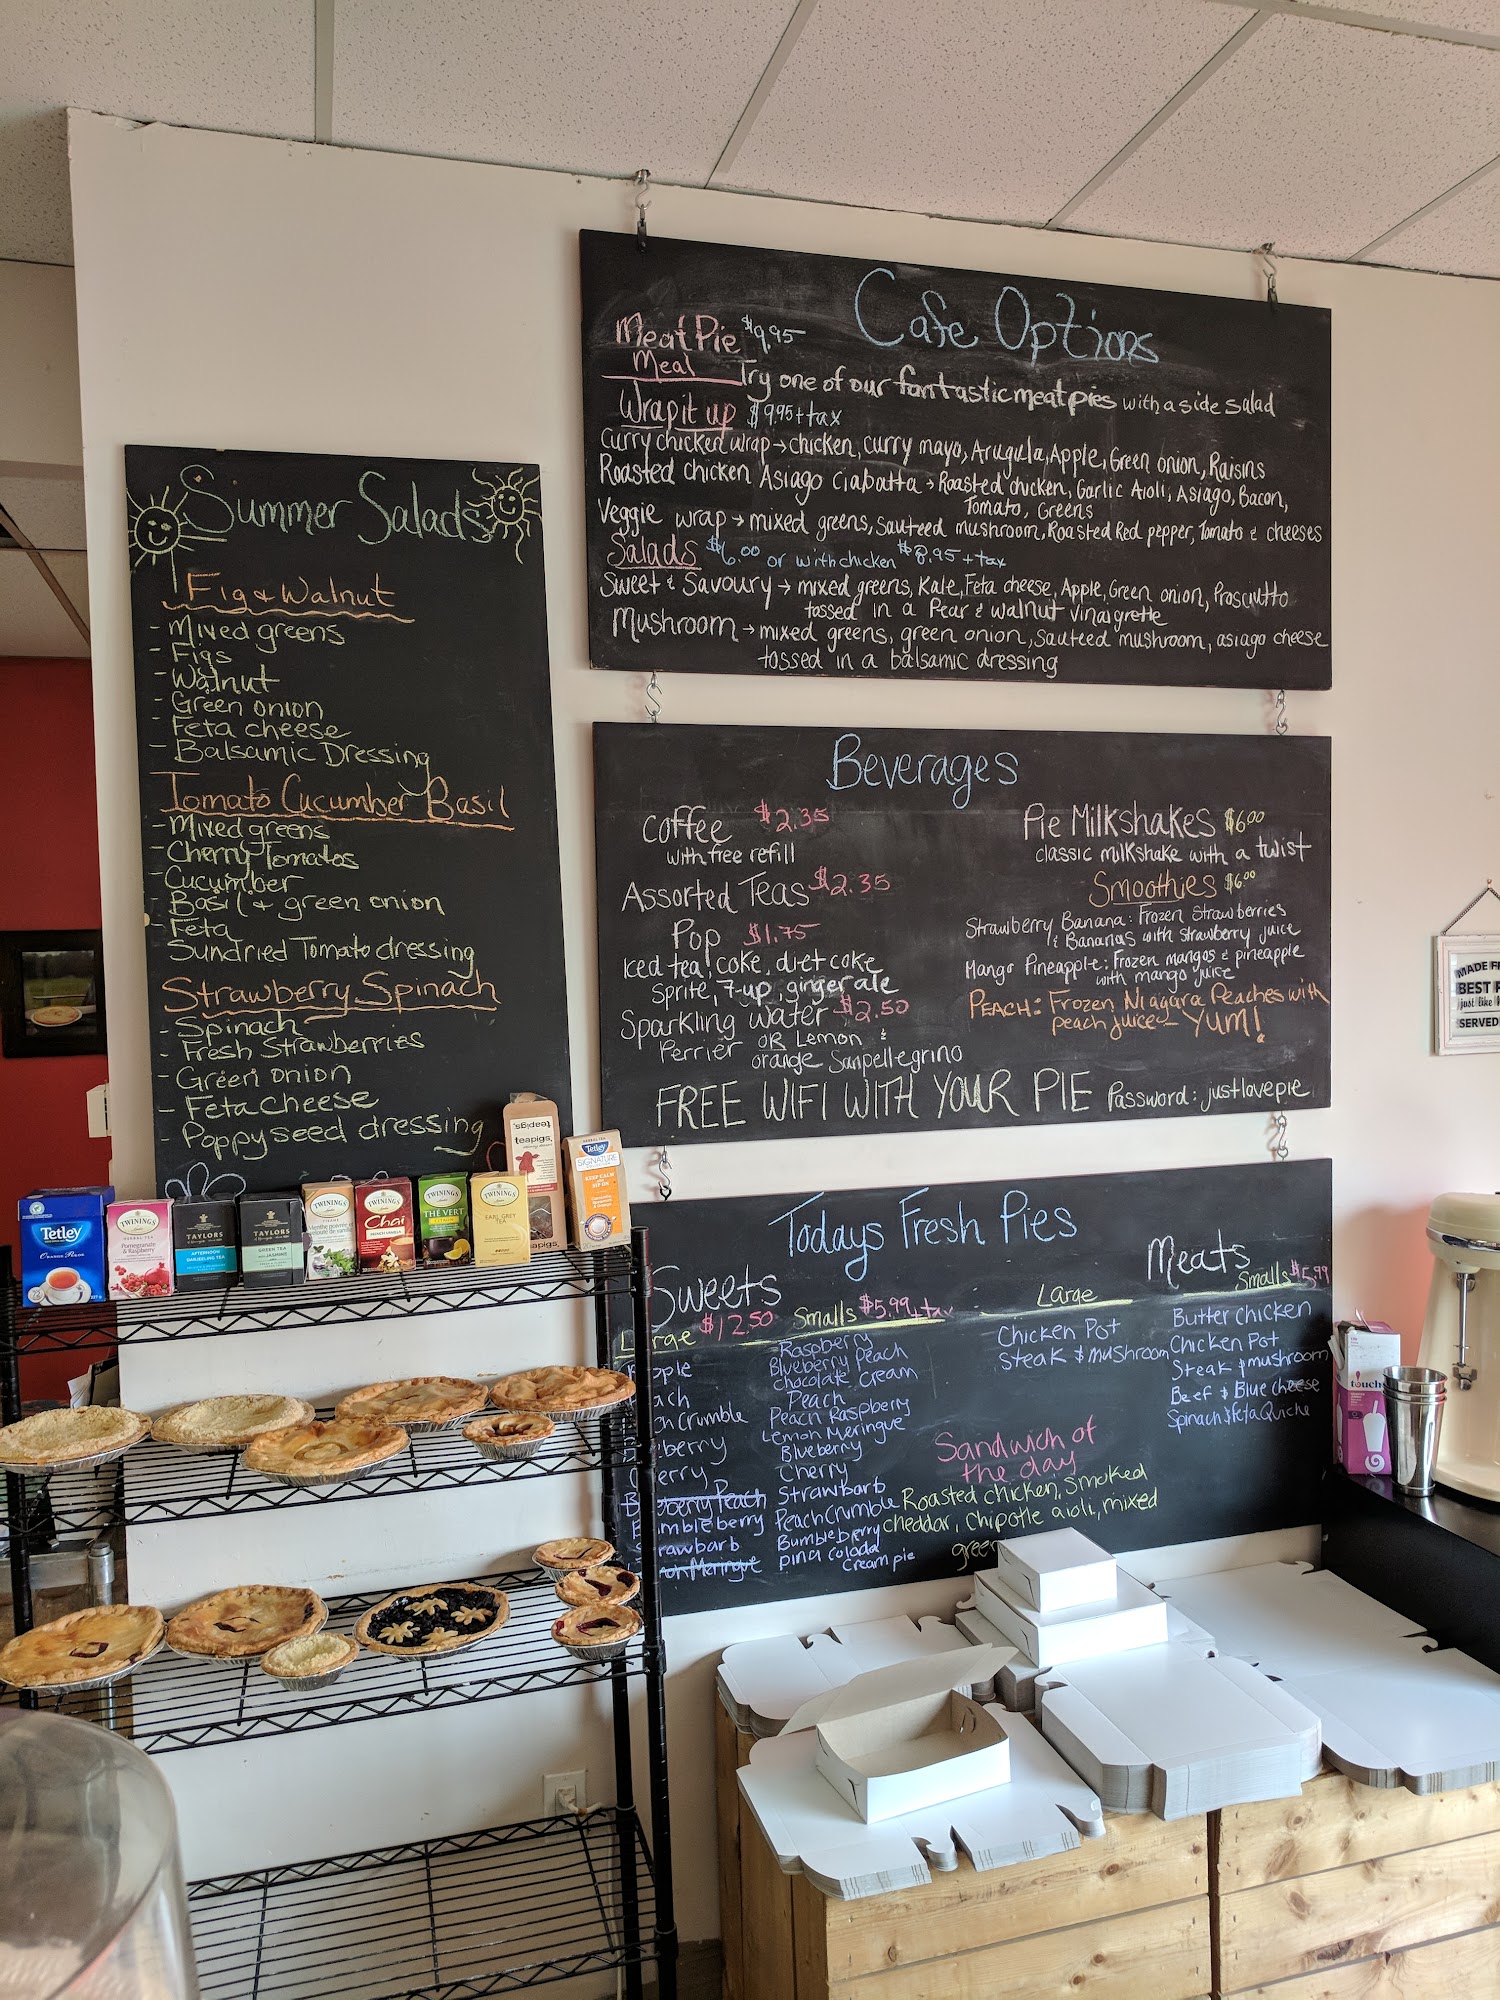 Summer Salads
Fig & Walnut
- Mixed greens
- Figs
- Walnut
- Green onion
- Feta cheese
- Balsamic Dressing
Tomato Cucumber Basil
- Mixed greens
- Cherry Tomatos
- Cucumber
- Basil & green onion
- Feta
- Sundried Tomato dressing
Strawberry Spinach
- Spinach
- Fresh Strawberries
- Green onion
- Feta cheese
- Poppyseed dressing
Cafe Options
Meat Pie $9.95
Meal
Try one of our fantastic meat pies with a side salad
Wrap it up $9.95 + tax
Curry chicken wrap → chicken, curry mayo, Arugula, Apple, Green onion, Raisins
Roasted chicken Asiago Ciabatta → Roasted chicken, Garlic Aioli, Asiago, Bacon,
Tomato, Greens
Veggie wrap → mixed greens, Sauteed mushroom, Roasted Red pepper, Tomato & cheeses
Salads $6.00 or with chicken $8.95 + tax
Sweet & Savoury → mixed greens, Kale, Feta cheese, Apple, Green onion, Prosciutto
tossed in a Pear & walnut vinaigrette
Mushroom → mixed greens, green onion, sauteed mushroom, asiago cheese
tossed in a balsamic dressing
Beverages
coffee $2.35
with free refill
Assorted Teas $2.35
Pop $1.75
Iced tea, coke, diet coke
Sprite, 7-up, ginger ale
Sparkling water $2.50
Perrier OR Lemon &
orange Sanpellegrino
Pie Milkshakes $6.00
classic milkshake with a twist
Smoothies $6.00
Strawberry Banana: Frozen Strawberries
& Bananas with strawberry juice
Mango Pineapple: Frozen mangos & pineapple
with mango juice
PEACH: Frozen Niagara Peaches with
peach juice - YUM!
FREE WIFI WITH YOUR PIE Password: justlovepie
Todays Fresh Pies
Sweets
Large $12.50
Peach Crumble
Cherry
Blueberry Peach
Bumbleberry
Strawbarb
Lemon Meringue
Smalls $5.99 + tax
Raspberry
Blueberry Peach
Chocolate Cream
Peach
Peach Raspberry
Lemon Meringue
Blueberry
Cherry
Strawbarb
Peach Crumble
Bumbleberry
pina colada
Cream pie
Large
Chicken Pot
Steak & mushroom
Meats
Smalls $5.99
Butter chicken
Chicken Pot
Steak & mushroom
Beef & Blue cheese
Spinach & feta Quiche
Sandwich of
the day
Roasted chicken, smoked
cheddar, chipotle aioli, mixed
Tetley
Orange Pekoe
TWININGS
Pomegranate
& Raspberry
TAYLORS
AFTERNOON
DARJEELING TEA
TAYLORS
GREEN TEA
with JASMINE
TWININGS
TWININGS
Chai
FRENCH VANILLA
TWININGS
THÉ VERT
TWININGS
EARL GREY
TEA
teapigs.
teapigs.
teapigs.
Tetley
SIGNATURE
KEEP CALM
touch
MADE
BEST
just like
SERVED